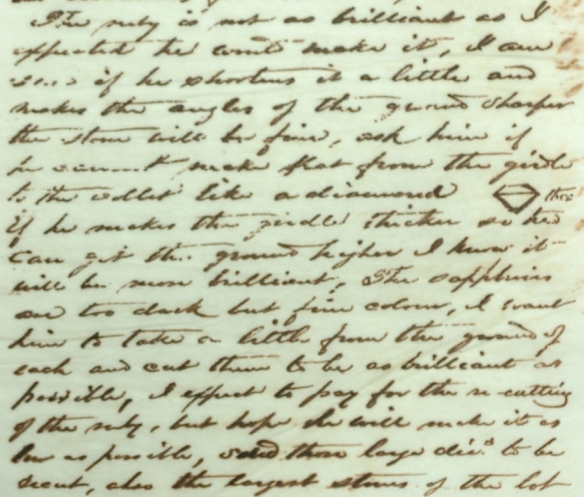 The ruby is not as brilliant as I
expected he could make it, I am
sure if he shortens it a little and
makes the angles of the ground sharper
the stone will be fine, ask him if
he cannot make flat from the girdle
to the collet like a diamond this
if he makes the girdle thicker so he
can get the ground higher I know it
will be more brilliant, The sapphires
are too dark but fine colour, I want
him to take a little from the ground of
each and cut them to be as brilliant as
possible, I expect to pay for the re-cutting
of the ruby, but hope he will make it as
low as possible, send those large dia.s to be
recut, also the largest stones of the lot